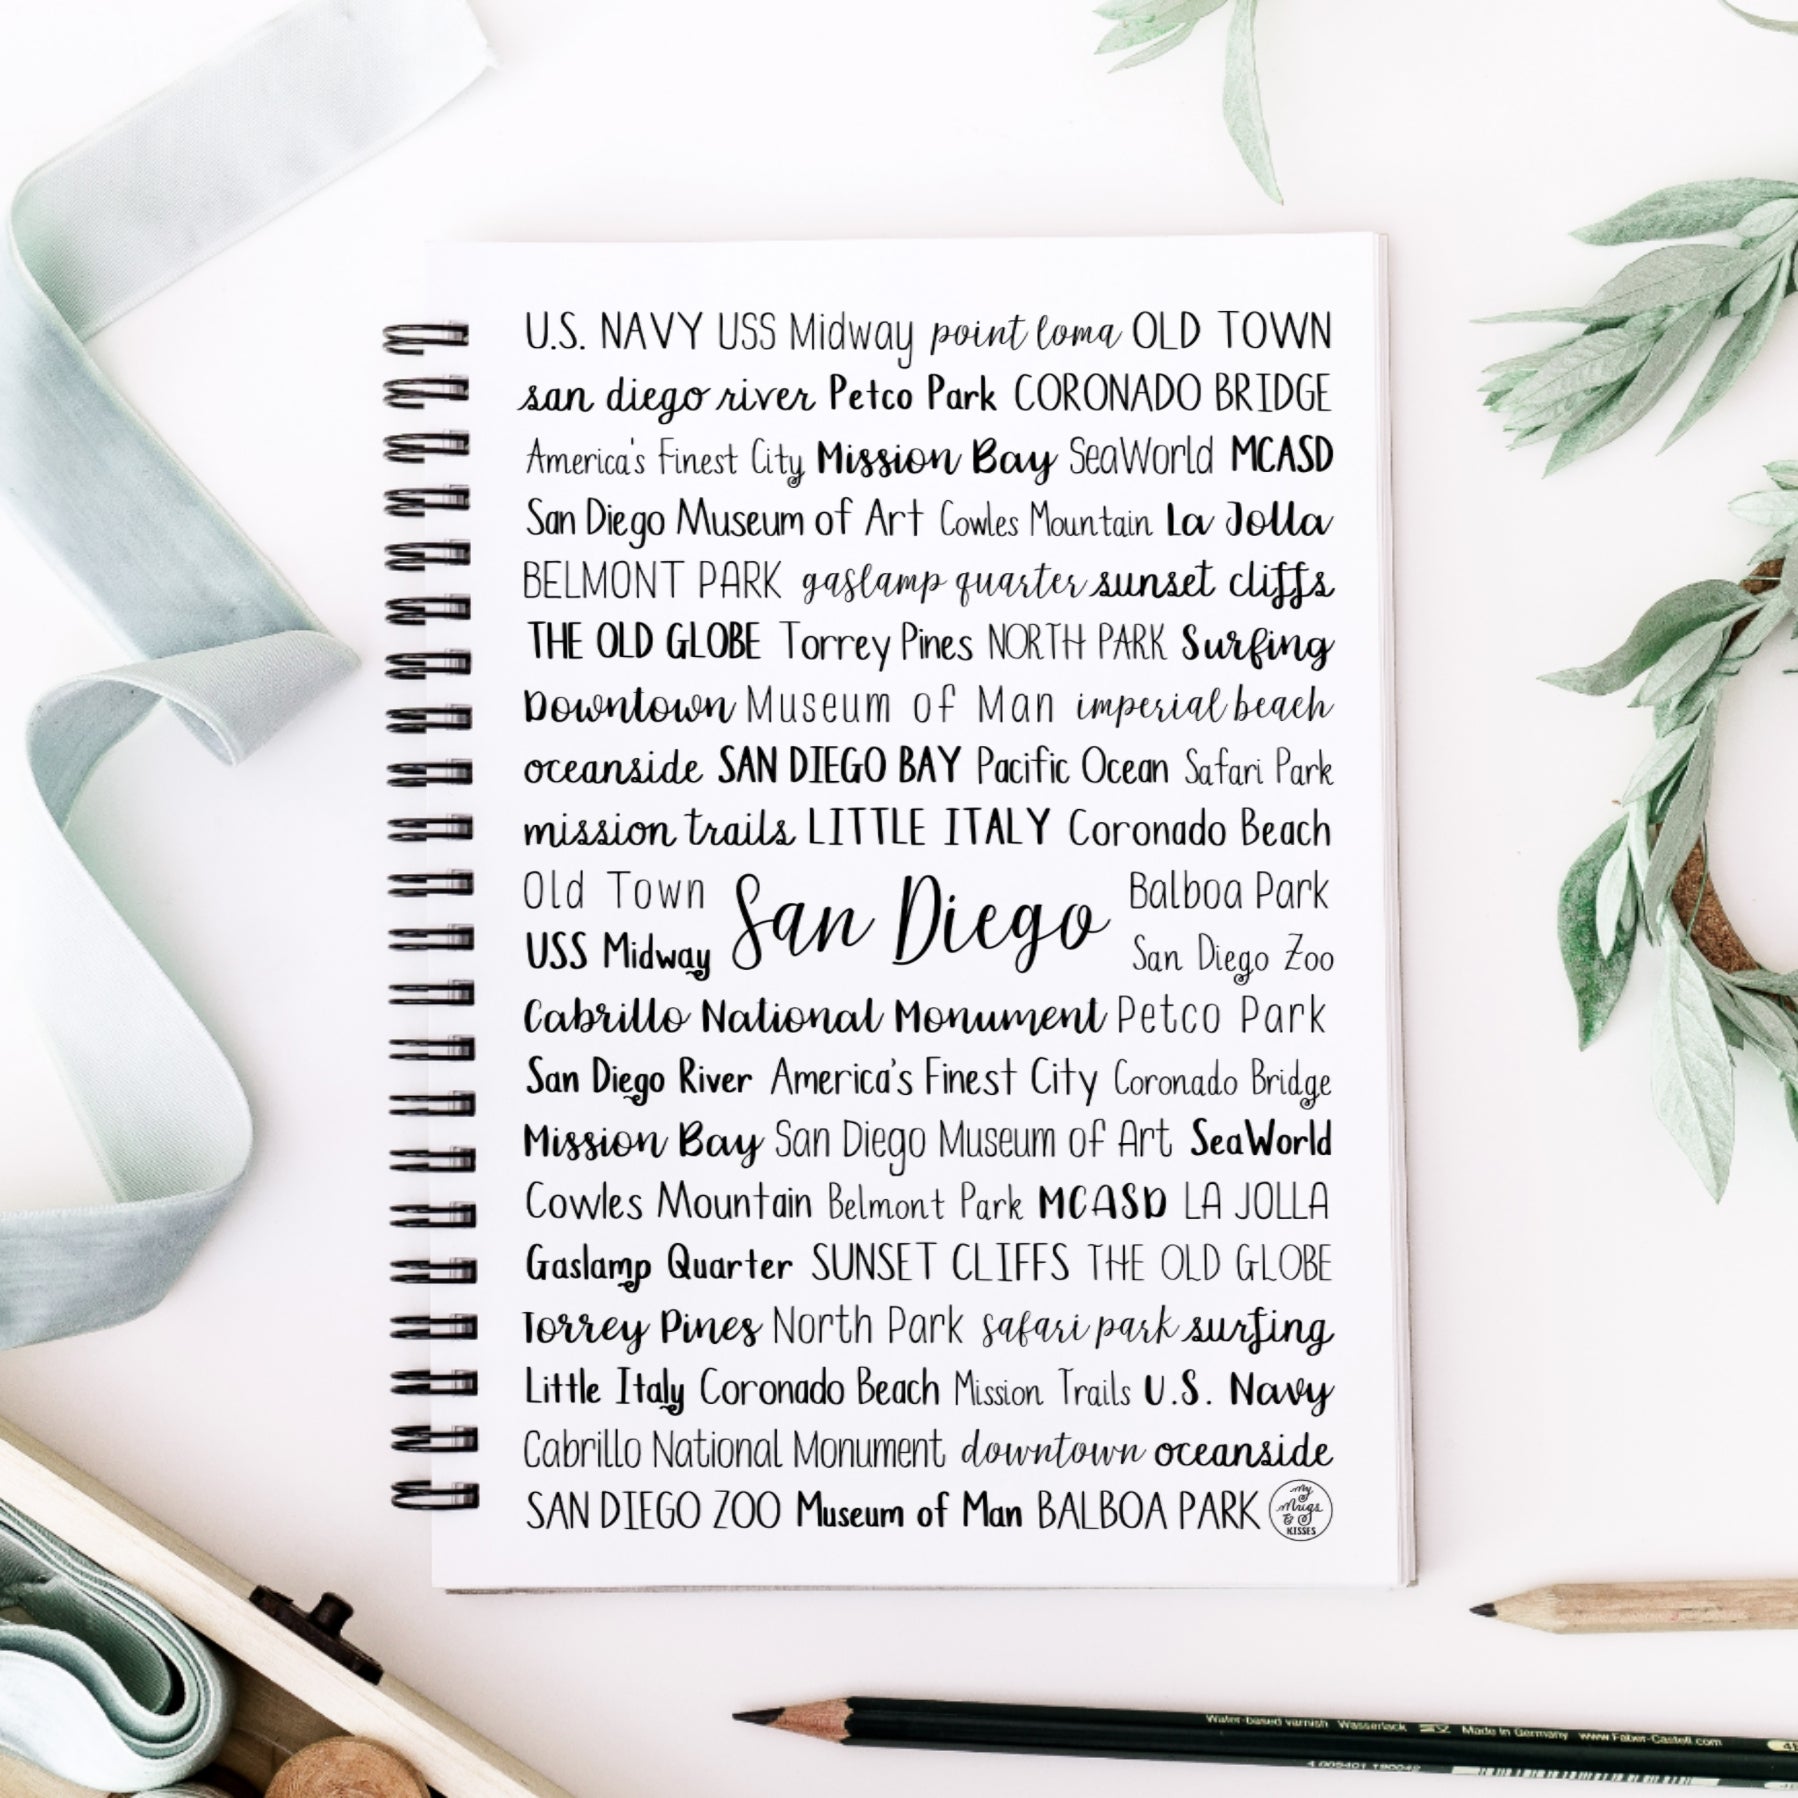 U.S. NAVY USS Midway point loma OLD TOWN
san diego river Petco Park CORONADO BRIDGE
America's Finest City Mission Bay SeaWorld MCASD
San Diego Museum of Art Cowles Mountain La Jolla
BELMONT PARK gaslamp quarter sunset cliffs
THE OLD GLOBE Torrey Pines NORTH PARK Surfing
Downtown Museum of Man imperial beach
oceanside SAN DIEGO BAY Pacific Ocean Safari Park
mission trails LITTLE ITALY Coronado Beach
Old Town
USS Midway
San Diego
Balboa Park
San Diego Zoo
Cabrillo National Monument Petco Park
San Diego River America's Finest City Coronado Bridge
Mission Bay San Diego Museum of Art SeaWorld
Cowles Mountain Belmont Park MCASD LA JOLLA
Gaslamp Quarter SUNSET CLIFFS THE OLD GLOBE
Torrey Pines North Park safari park surfing
Little Italy Coronado Beach Mission Trails U.S. Navy
Cabrillo National Monument downtown oceanside
SAN DIEGO ZOO Museum of Man BALBOA PARK
My
Mugs
&
KISSES
Water-based varnish Wasserlack Made in Germany www.Faber-Castell.com
4 005401 190042